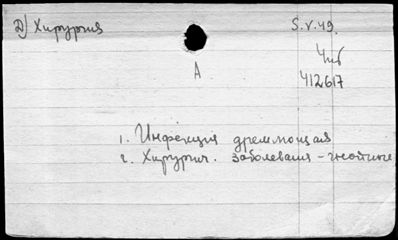 Д) Хирургия
5.V.49.
Чиб
412617
А
1. Инфекция дремлющая
2. Хирургич. заболевания - гнойные